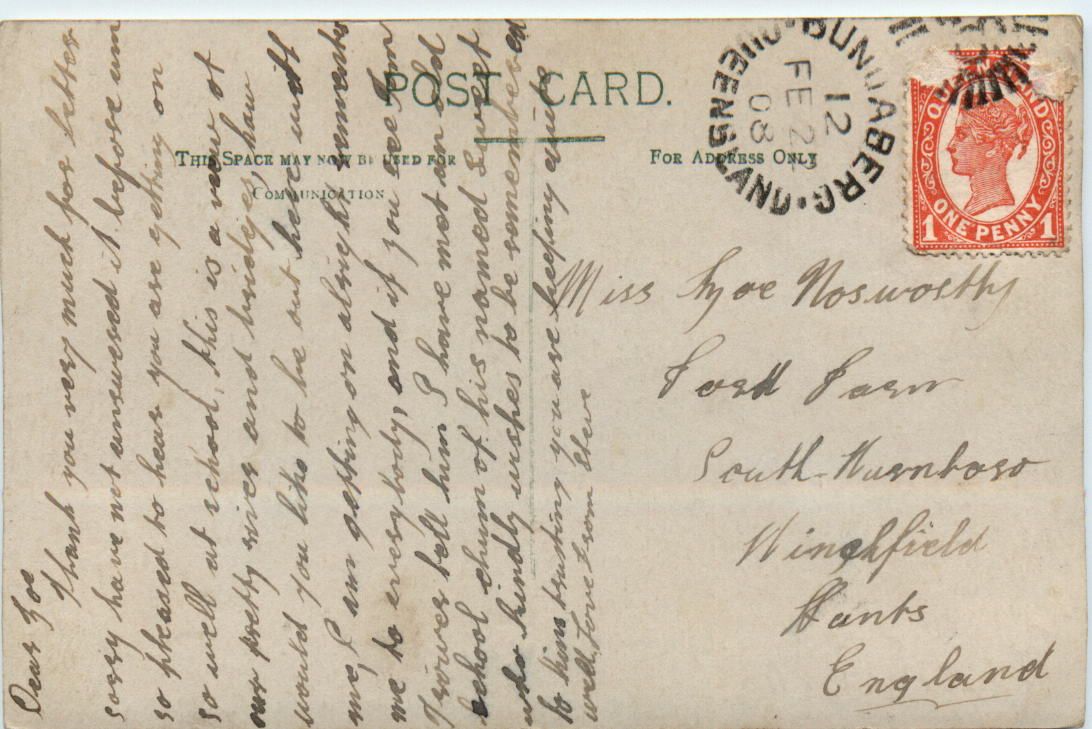 POST CARD.
THIS SPACE MAY NOW BE USED FOR
COMMUNICATION
FOR ADDRESS ONLY
BUNDABERG
QUEENSLAND
12
FE 22
08
QUEENSLAND
ONE PENNY
1 1
Dear Zoe
Thank you very much for letter
sorry have not answered it before am
so pleased to hear you are getting on
so well at school, this is a view of
our pretty river and bridges, how
would you like to be out here with
me, I am getting on alright, remember
me to everybody, and if you see Tom
Trower tell him I have met an old
school chum of his named Sweet
who kindly wishes to be remembered
to him trusting you are keeping quite
well, love from Steve
Miss Zoe Nosworthy
Ford Farm
South-Warnboro
Winchfield
Hants
England